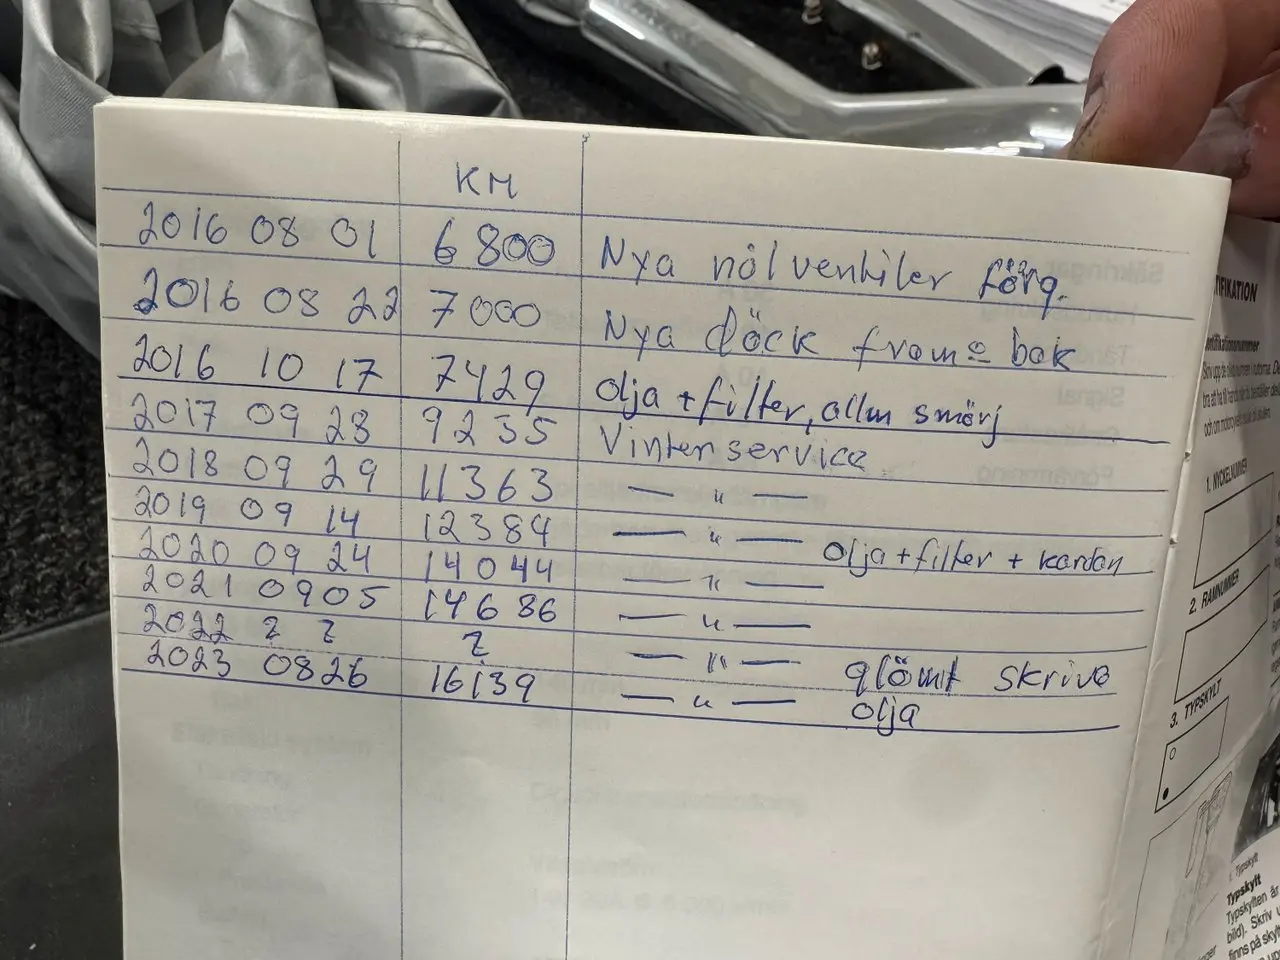 KM
2016 08 01 6800 Nya nålventiler förg.
2016 08 22 7000 Nya däck fram o bak
2016 10 17 7429 olja + filter, allm smörj
2017 09 28 9235 Vinterservice
2018 09 29 11363 — " —
2019 09 14 12384 — " — olja + filter + kardan
2020 09 24 14044 — " —
2021 09 05 14686 — " —
2022 ? ? ? — " — glömt skriva
2023 08 26 16139 — " — olja
TIFIKATION
1. NYCKELNUMMER
2. RAMNUMMER
3. TYPSKYLT
Typskylt
Typskylt
Typskylten är
bild). Skriv
finns på